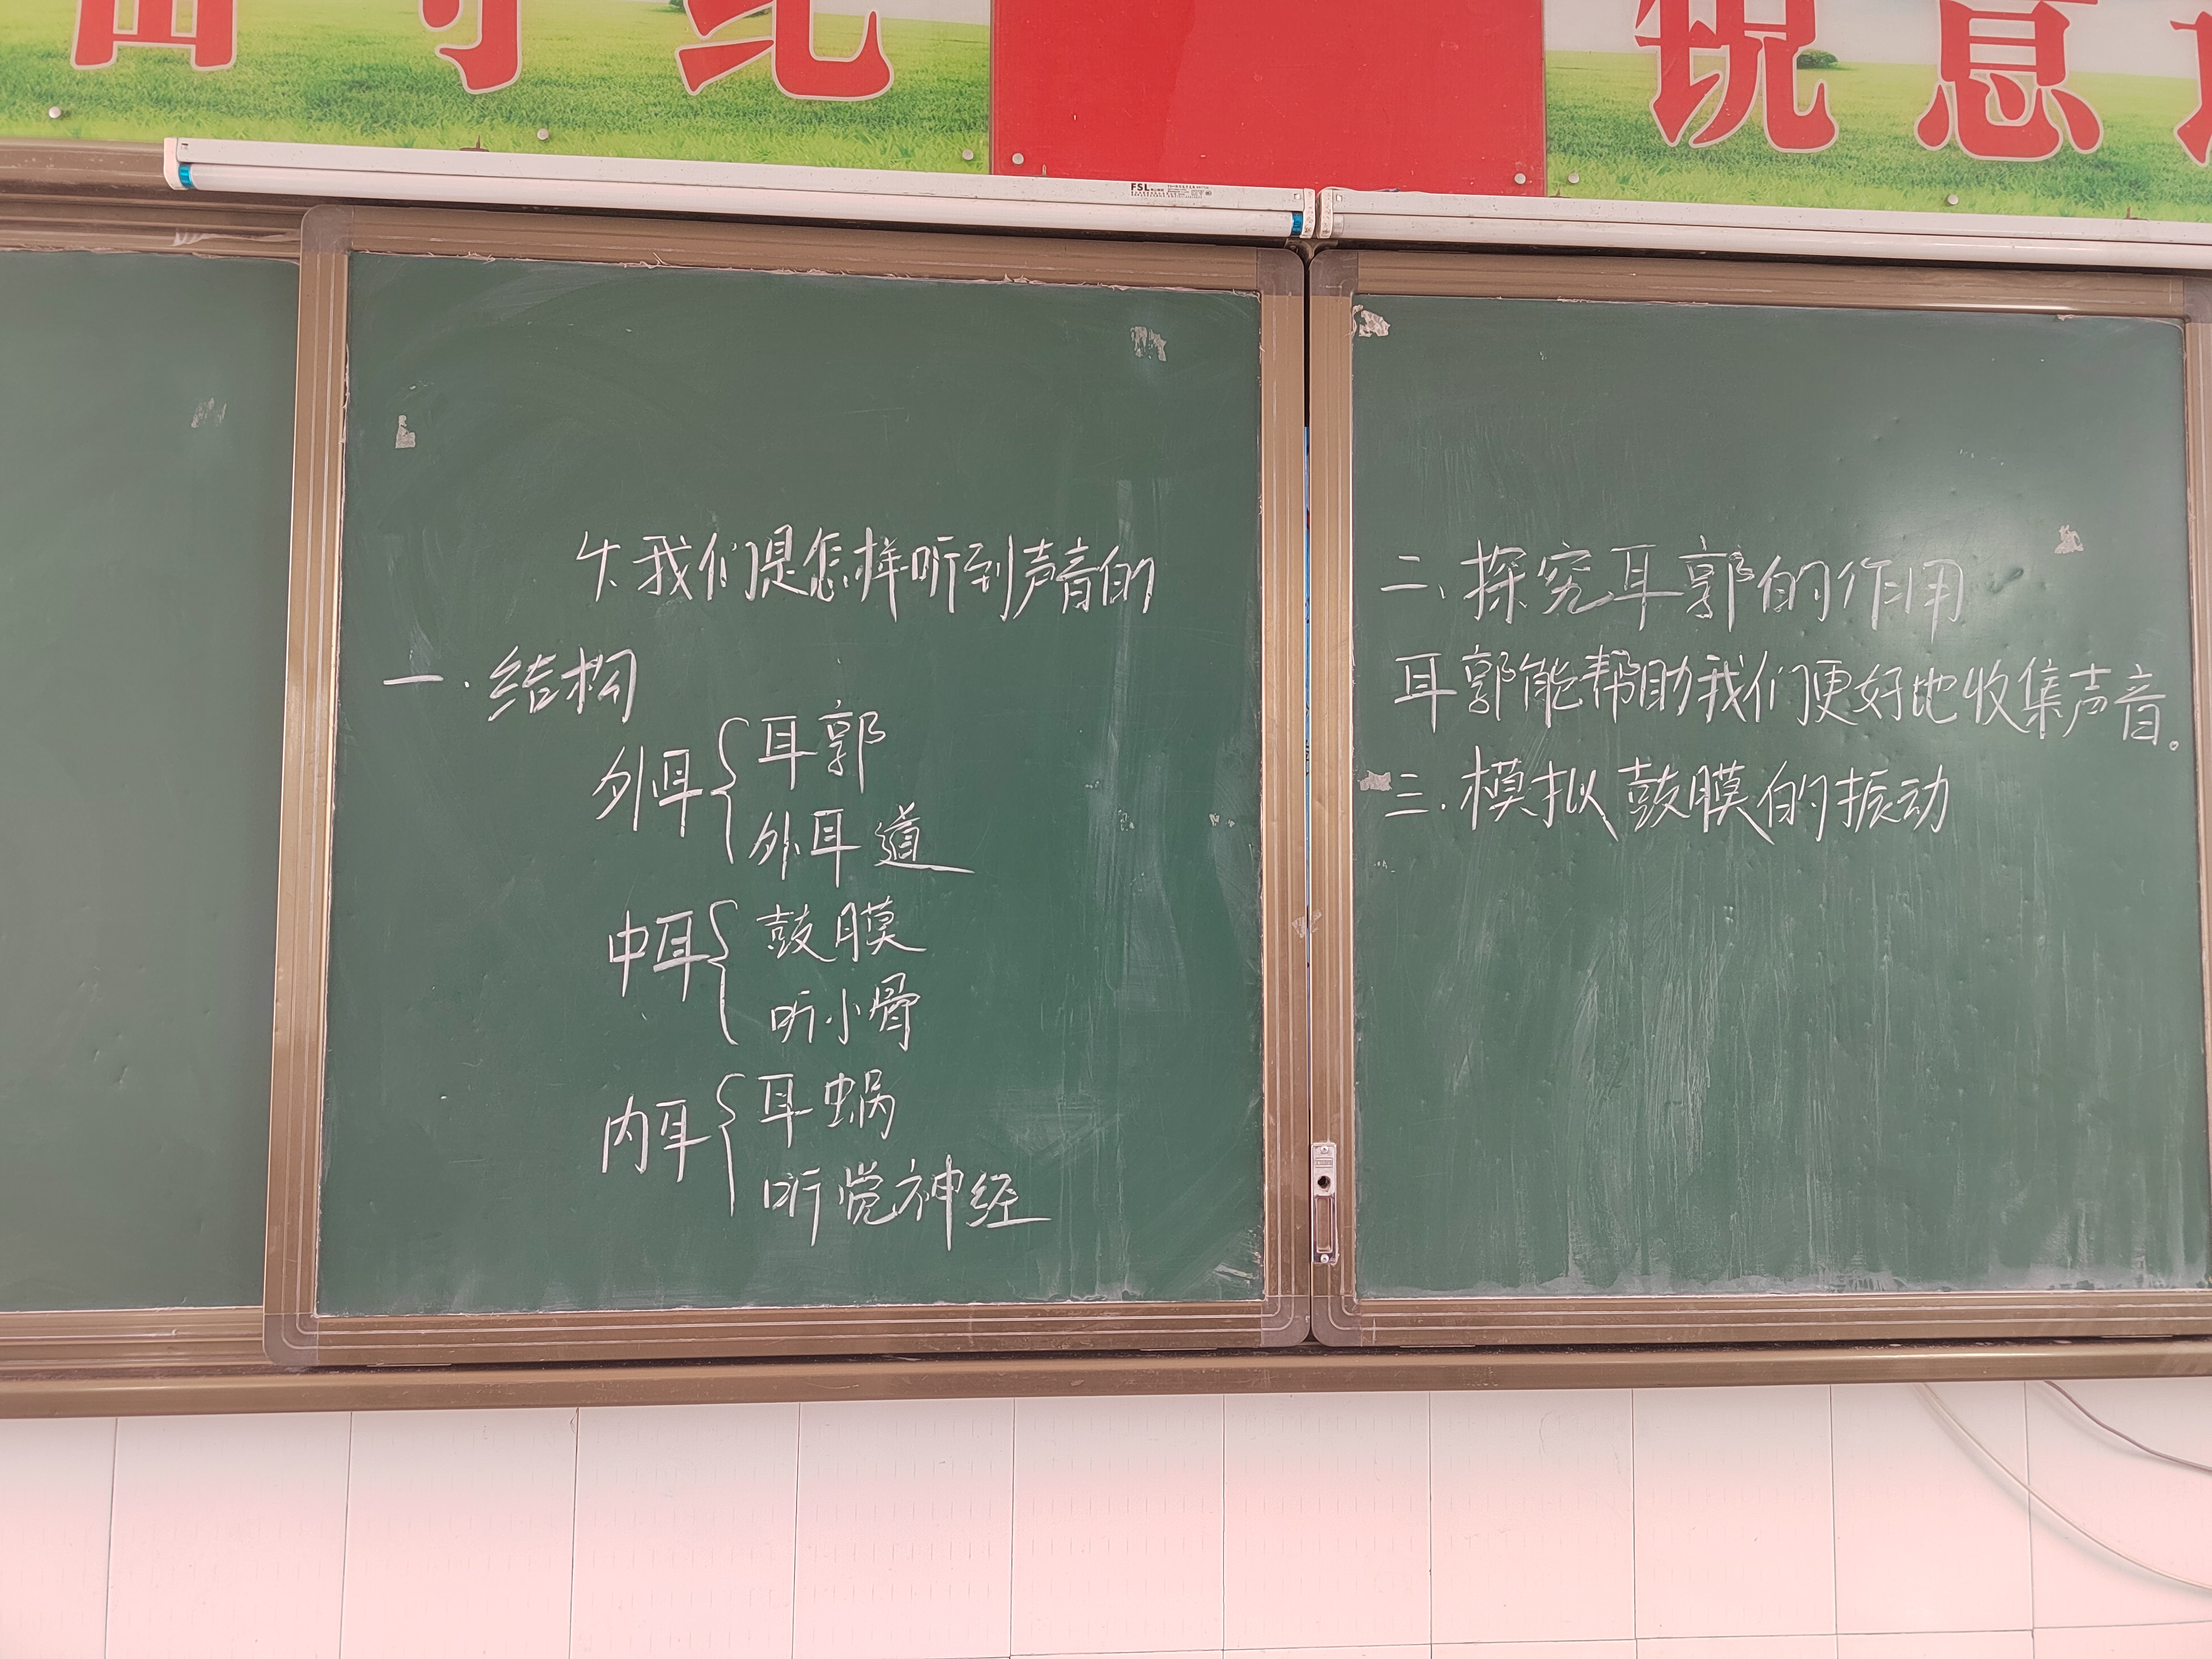 纪
锐意
FSL
4、我们是怎样听到声音的
一.结构
外耳{耳郭
外耳道
中耳{鼓膜
听小骨
内耳{耳蜗
听觉神经
二、探究耳郭的作用
耳郭能帮助我们更好地收集声音。
三.模拟鼓膜的振动